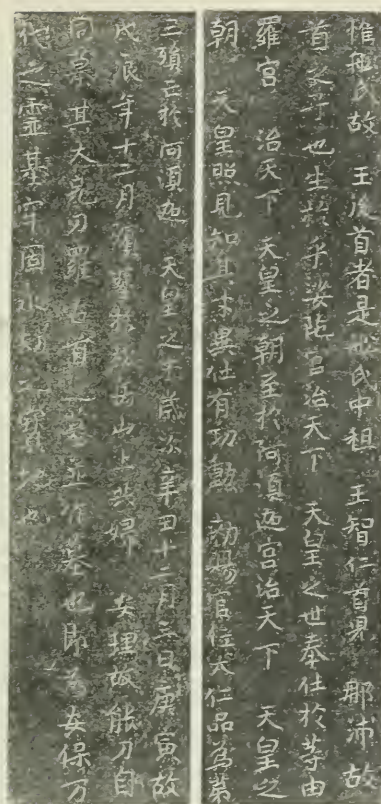 惟舩氏故 王後首者是舩氏中祖 王智仁首児 那沛故
首之子也生於乎娑陁宮治天下 天皇之世奉仕於等由
羅宮 治天下 天皇之朝至於阿須迦宮治天下 天皇之
朝 天皇照見知其才異仕有功勲 勅賜官位大仁品為第
三殞亡於阿須迦 天皇之末歳次辛丑十二月三日庚寅故
戊辰年十二月殯葬於松岳山上共婦 安理故能刀自
同墓其大兄刀羅古首之墓並作墓也即為安保万
代之霊基牢固永劫之寶地也